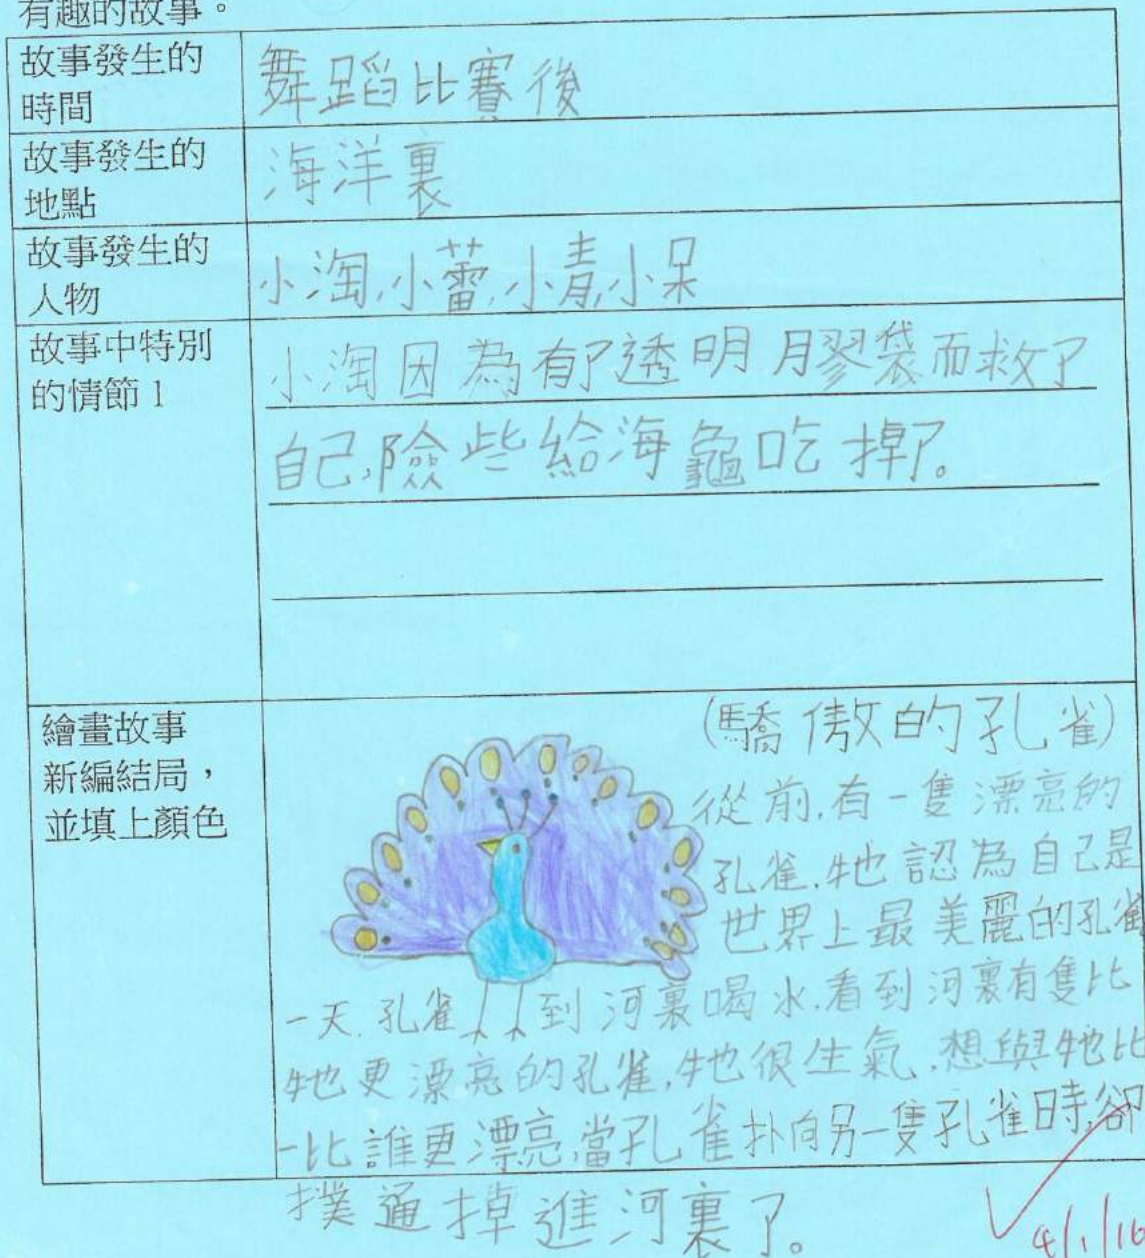 有趣的故事。
故事發生的
時間
舞蹈比賽後
故事發生的
地點
海洋裏
故事發生的
人物
小淘,小蕾,小青,小呆
故事中特別
的情節1
小淘因為有了透明膠袋而救了
自己,險些給海龜吃掉了。
繪畫故事
新編結局,
並填上顏色
(驕傲的孔雀)
從前,有一隻漂亮的
孔雀,牠認為自己是
世界上最美麗的孔雀
一天,孔雀到河裏喝水,看到河裏有隻比
牠更漂亮的孔雀,牠很生氣,想與牠比
一比誰更漂亮,當孔雀扑向另一隻孔雀時,卻
撲通掉進河裏了。
4/1/16